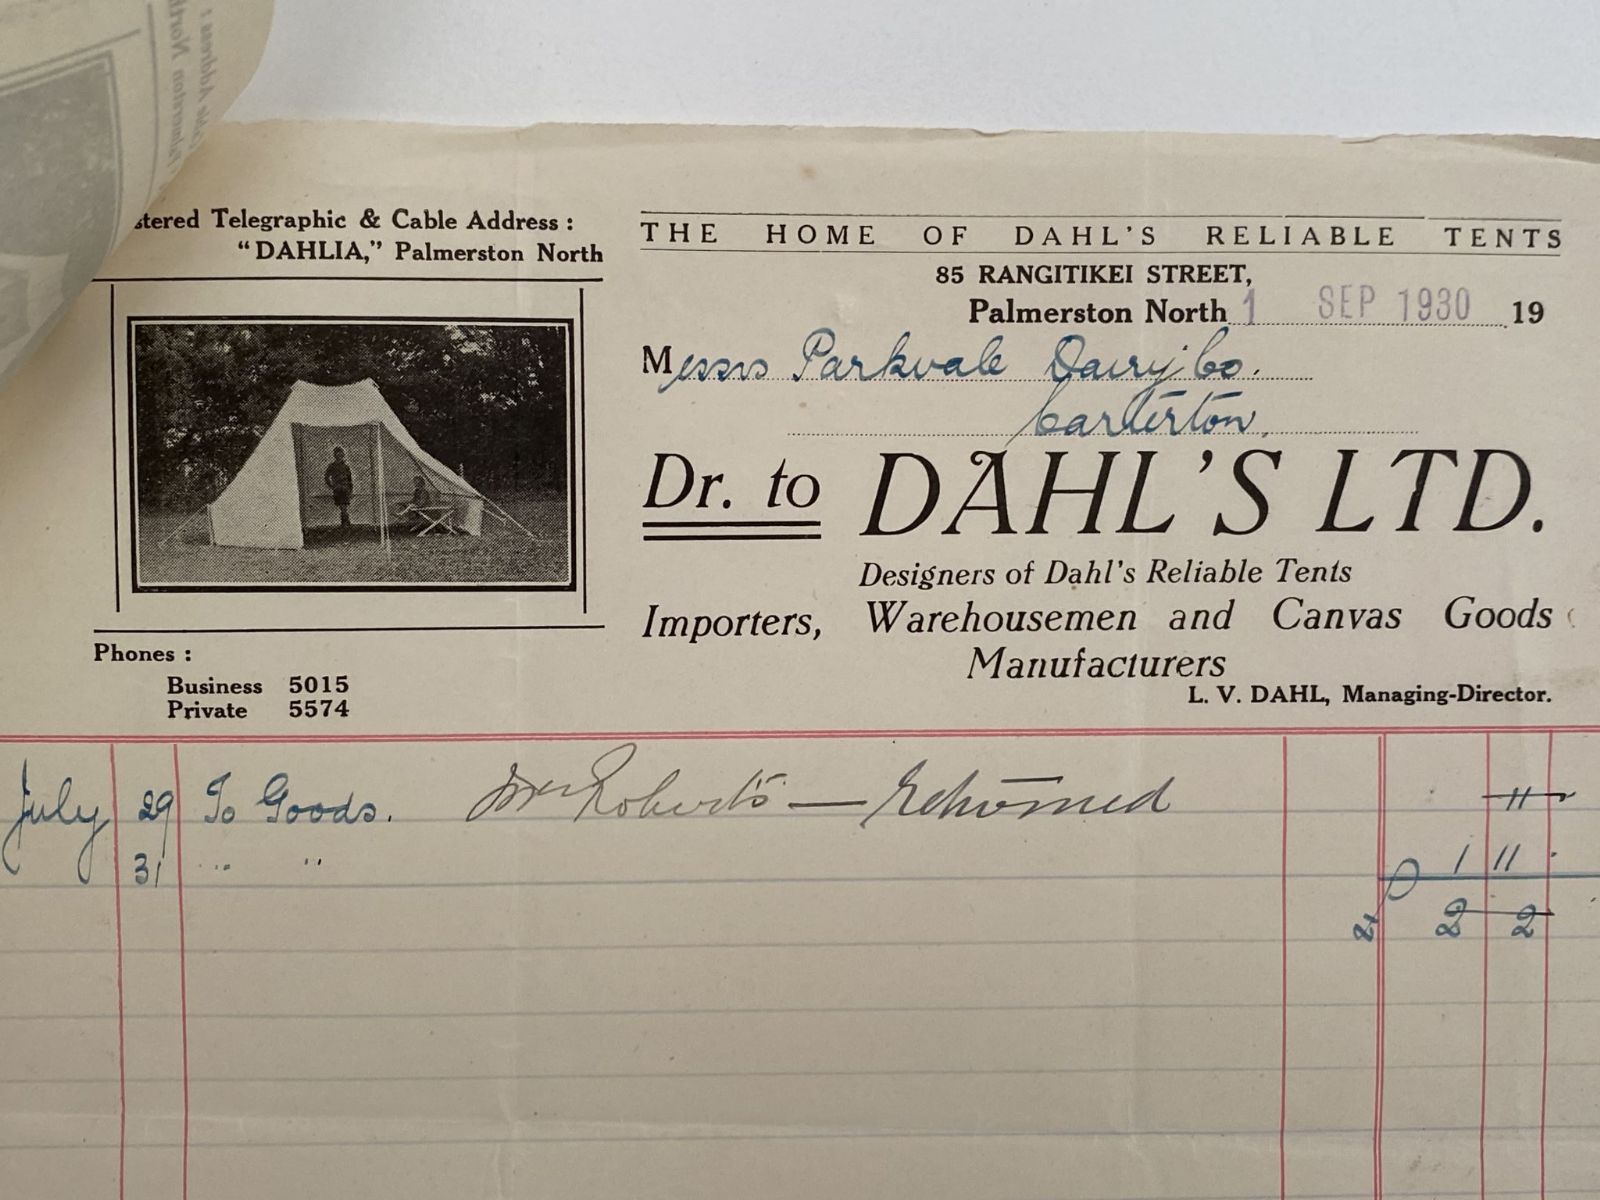 stered Telegraphic & Cable Address :
"DAHLIA," Palmerston North
THE HOME OF DAHL'S RELIABLE TENTS
85 RANGITIKEI STREET,
Palmerston North 1 SEP 1930 19
Messrs Parkvale Dairy Co.
Carterton.
Dr. to DAHL'S LTD.
Designers of Dahl's Reliable Tents
Importers, Warehousemen and Canvas Goods
Manufacturers
L. V. DAHL, Managing-Director.
Phones :
Business 5015
Private 5574
July 29 To Goods. Roberts — Returned 11
31 " " 1 11
2 2